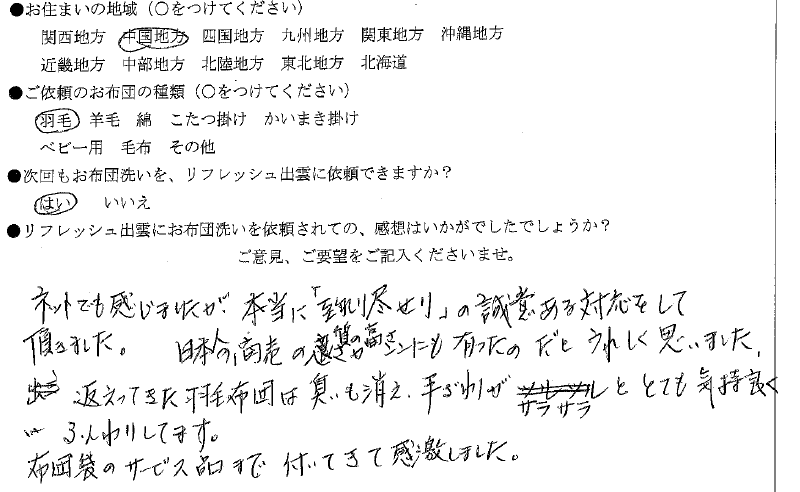 ●お住まいの地域（○をつけてください）
関西地方 中国地方 四国地方 九州地方 関東地方 沖縄地方
近畿地方 中部地方 北陸地方 東北地方 北海道
●ご依頼のお布団の種類（○をつけてください）
羽毛 羊毛 綿 こたつ掛け かいまき掛け
ベビー用 毛布 その他
●次回もお布団洗いを、リフレッシュ出雲に依頼できますか？
はい いいえ
●リフレッシュ出雲にお布団洗いを依頼されての、感想はいかがでしたでしょうか？
ご意見、ご要望をご記入くださいませ。
ネットでも感じましたが、本当に「至れり尽せり」の誠意ある対応をして
頂きました。 日本人の商売の質の高さ にも有ったのだとうれしく思いました。
返えってきた羽毛布団は臭いも消え、手ざわりがサラサラととても気持良く
ふんわりしてます。
布団袋のサービス品まで付いてきて感激しました。